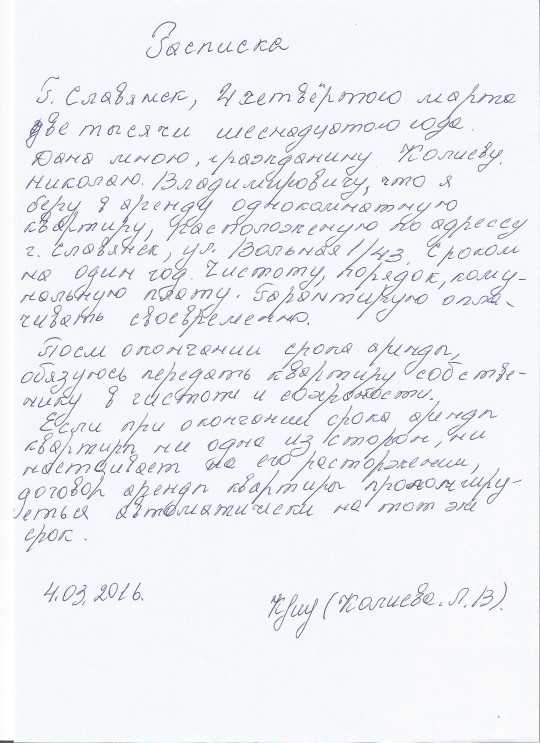 Засписка
Г. Славянск, 4 четвёртого марта
две тысячи шеснадцатого года.
Дана мною, гражданину Колиеву
Николаю. Владимировичу, что я
беру в аренду однокомнатную
квартиру, расположеную по адрессу
г. Славянск, ул. Вольная 1/43. Сроком
на один год. Чистоту, порядок, кому-
нальную плату. Гарантирую опла-
чивать своевременно.
После окончании срока аренды,
обязуюсь передать квартиру собстве-
нику в чистоте и сохраности.
Если при окончании срока аренды
квартиры ни одна из сторон, ни
настаивает на его расторжении,
договор аренды квартиры пролонгиру-
еться автоматически на тот же
срок.
4.03.2016. (Колиева. Л. В).